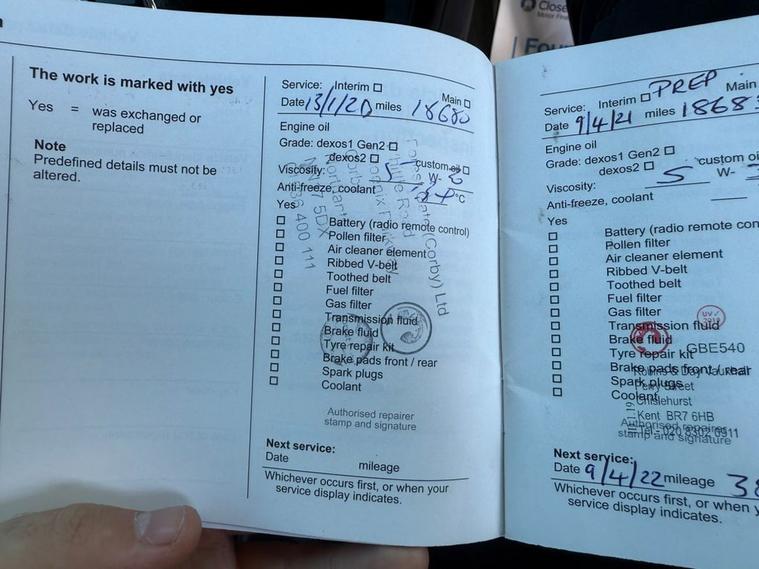 Close
Motor Fina
The work is marked with yes
Yes = was exchanged or
replaced
Note
Predefined details must not be
altered.
Service: Interim Main
Date 13/1/20 miles 18680
Engine oil
Grade: dexos1 Gen2
dexos2 custom oil
Viscosity: 5 W-
Anti-freeze, coolant °C
Yes
Battery (radio remote control)
Pollen filter
Air cleaner element
Ribbed V-belt
Toothed belt
Fuel filter
Gas filter
Transmission fluid
Brake fluid
Tyre repair kit
Brake pads front / rear
Spark plugs
Coolant
(Corby) Ltd
Road
5DX
400 111
Authorised repairer
stamp and signature
Next service:
Date mileage
Whichever occurs first, or when your
service display indicates.
PREP
Service: Interim Main
Date 9/4/21 miles 1868
Engine oil
Grade: dexos1 Gen2
dexos2 custom oi
Viscosity: 5 W-
Anti-freeze, coolant
Yes
Battery (radio remote
Pollen filter
Air cleaner element
Ribbed V-belt
Toothed belt
Fuel filter
Gas filter
Transmission fluid
Brake fluid
Tyre repair kit
Brake pads front / rear
Spark plugs
Coolant
GBE540
Robins & Day Vauxhall
Perry Street
Chislehurst
Kent BR7 6HB
Tel: 020 8302 0911
Authorised repairer
stamp and signature
Next service:
Date 9/4/22 mileage 38
Whichever occurs first, or when y
service display indicates.